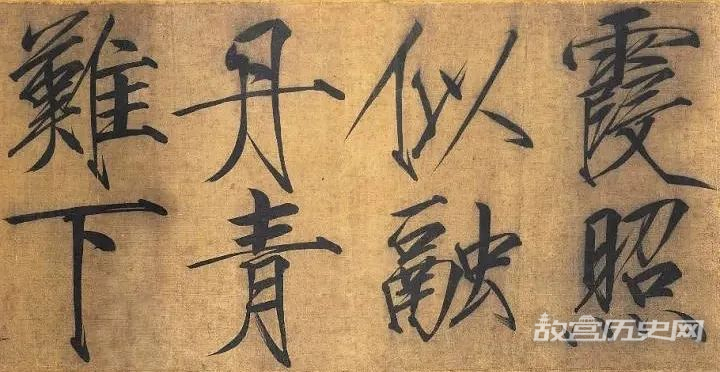 霞照
似融
丹青
難下
故宫历史网